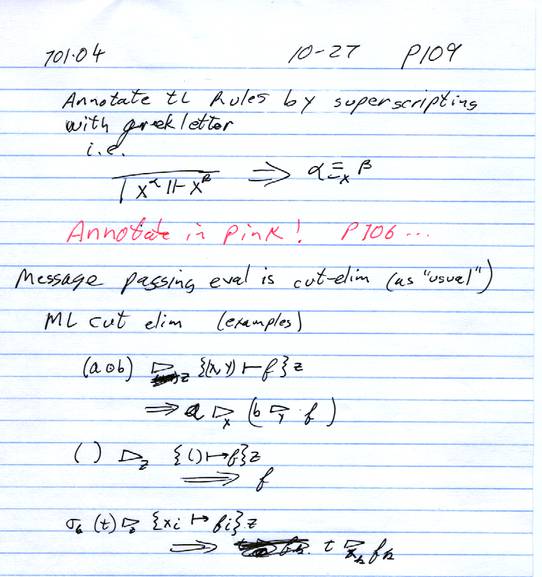 701.04 10-27 P109
Annotate LL Rules by superscripting
with greek letter
i.e.
Γ x^α ⊩ x^β ⟹ α ≡_x β
Annotate in pink! P106...
Message passing eval is cut-elim (as "usual")
ML cut elim (examples)
(a⊗b) ▷_z {(x,y) ↦ f} z
⟹ a ▷_x (b ▷_y f)
( ) ▷_z {() ↦ f} z
⟹ f
σ_k (t) ▷_z {x_i ↦ f_i} z
⟹ t ▷_{x_k} f_k